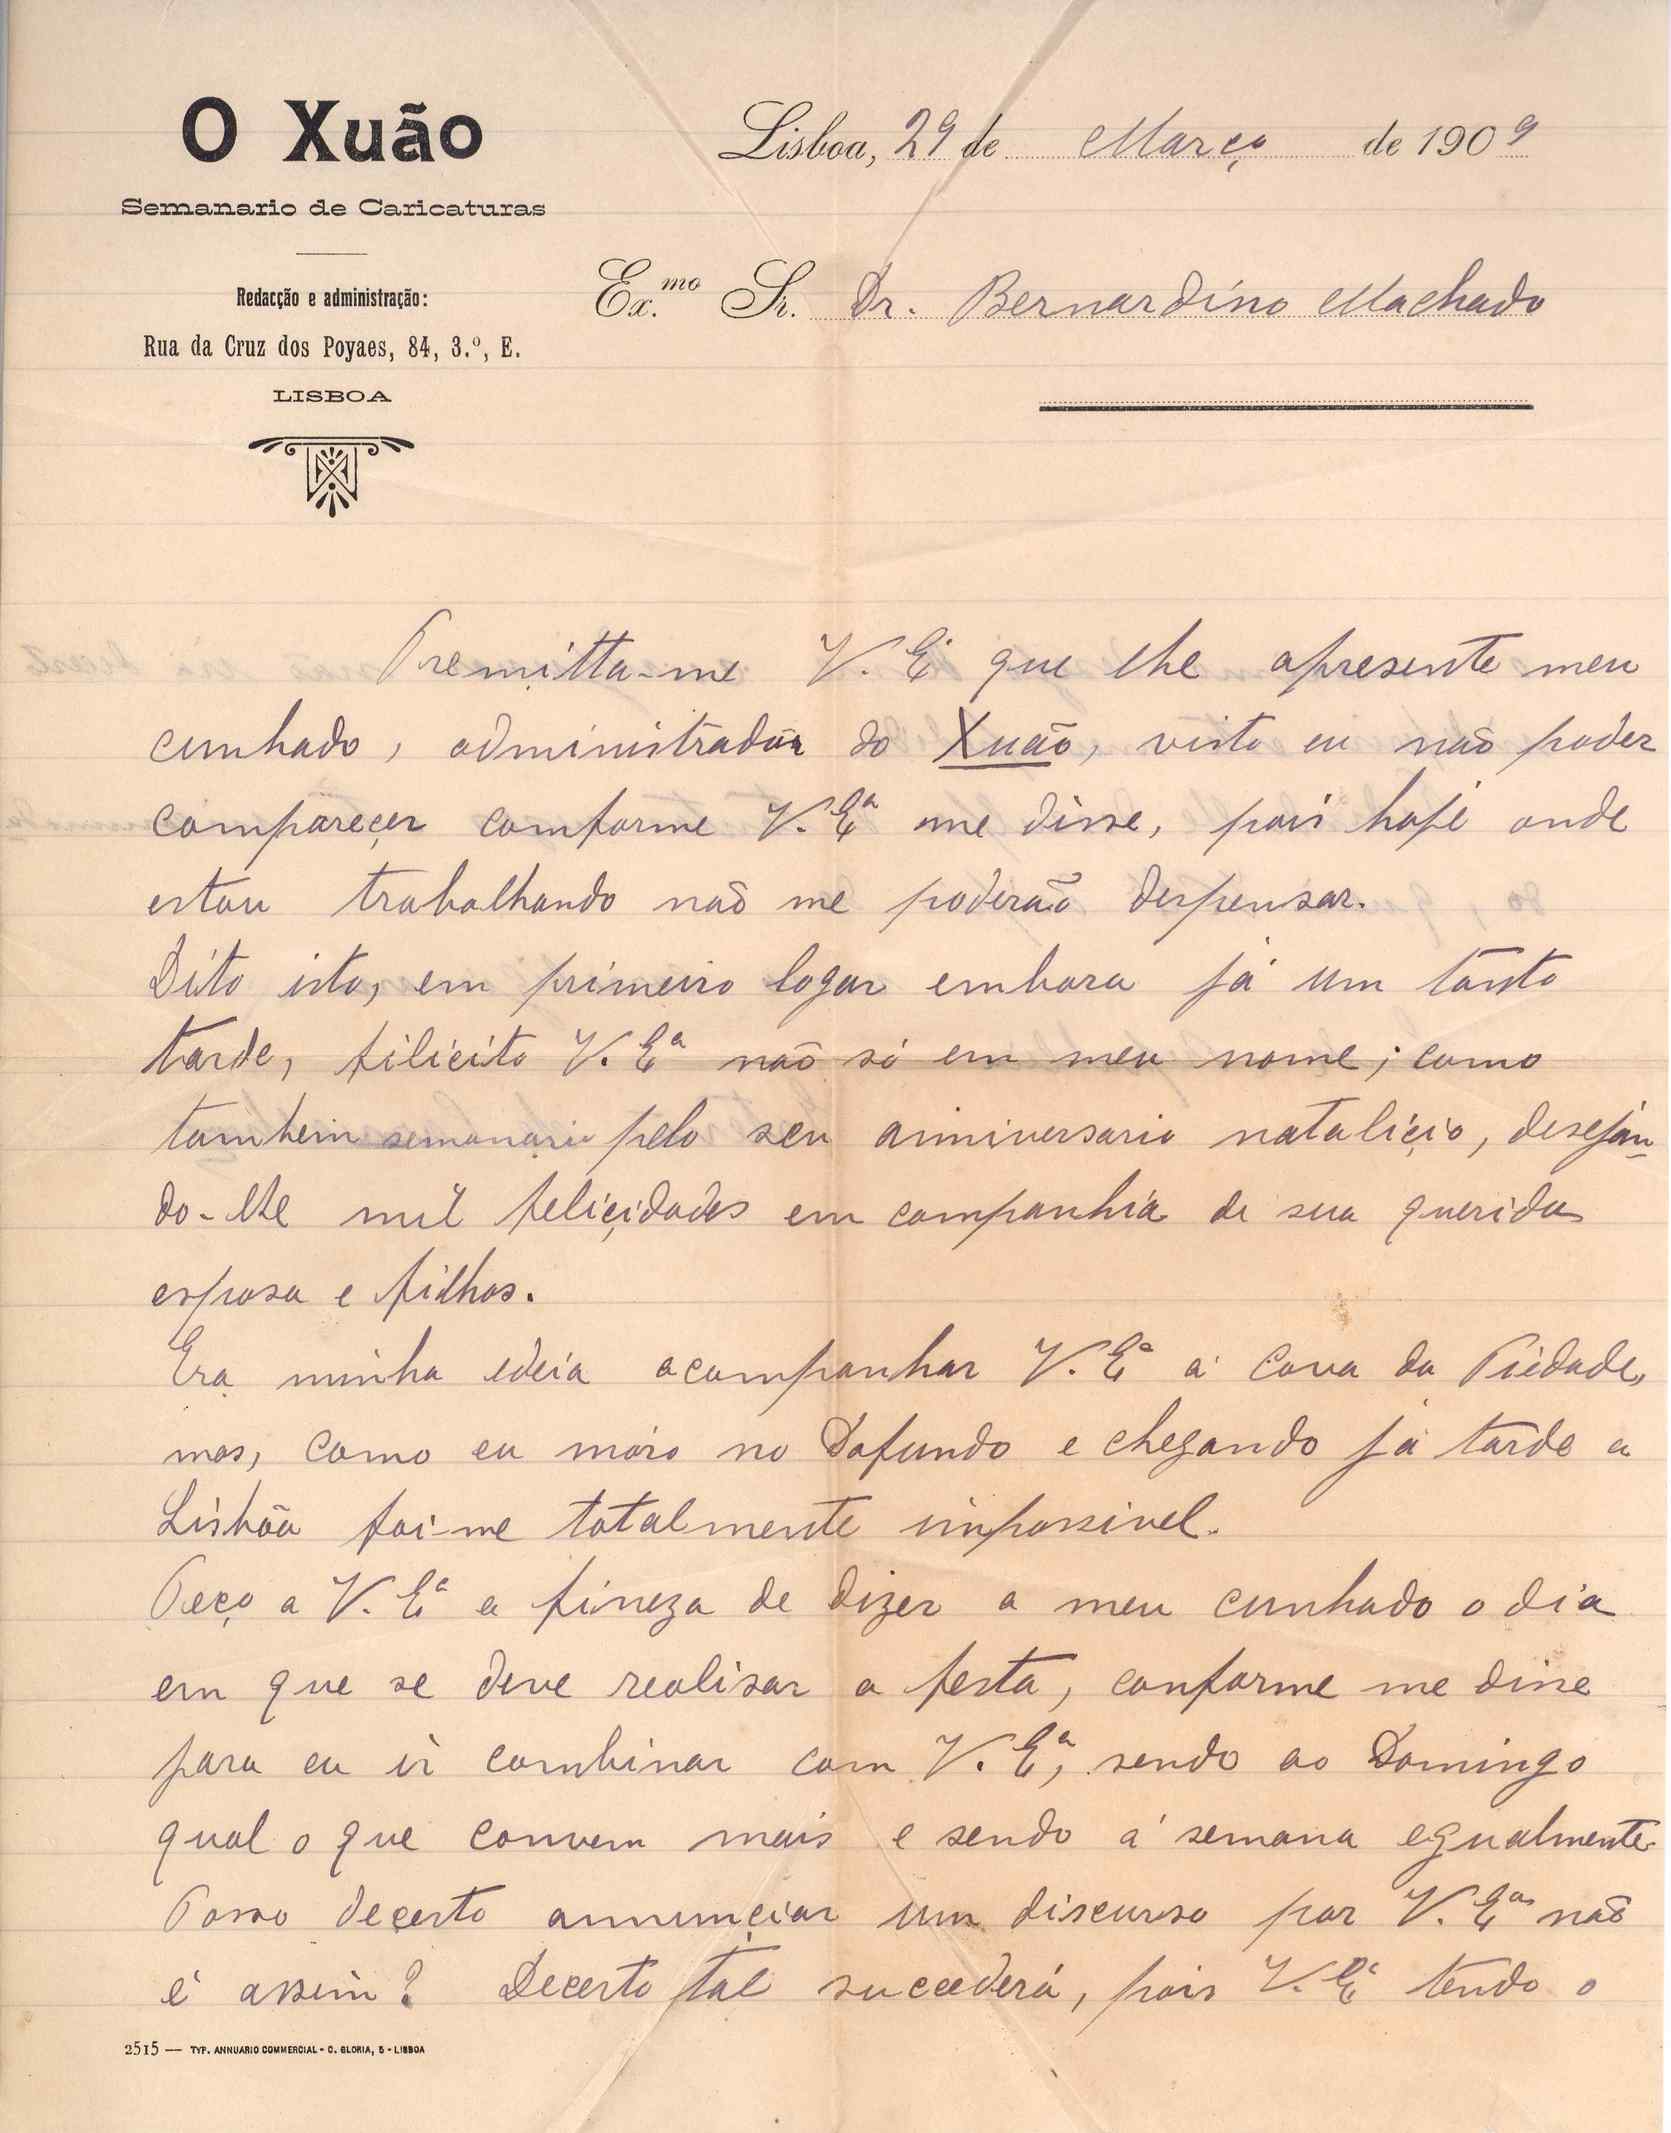 O Xuão
Semanario de Caricaturas
Redacção e administração:
Rua da Cruz dos Poyaes, 84, 3.º, E.
LISBOA
Lisboa, 29 de Março de 1909
Ex.mo Sr. Dr. Bernardino Machado
Premitta-me V. Eª que lhe apresente meu
cunhado, administradôr do Xuão, visto eu não poder
compareçer comforme V. Eª me disse, pois hoje onde
estou trabalhando não me poderão despensar.
Dito isto, em primeiro logar embora já um tanto
tarde, filicito V. Eª não só em meu nome; como
tambem semanario pelo seu anniversario natalíçio, desejan-
do-lhe mil feliçidades em companhia de sua querida
esposa e filhos.
Era minha edeia acompanhar V. Eª á Cova da Piedade,
mas, como eu móro no Dafundo e chegando já tarde a
Lisbôa foi-me totalmente impossivel.
Peço a V. Eª a fineza de dizer a meu cunhado o dia
em que se deve realisar a festa, conforme me disse
para eu ir combinar com V. Eª, sendo ao Domingo
qual o que convem mais e sendo á semana egualmente.
Posso deçerto annunçiar um discurso por V. Eª não
é assim? Decerto tal succederá, pois V. Eª tendo o
2515 — TYP. ANNUARIO COMMERCIAL - C. GLORIA, 5 - LISBOA